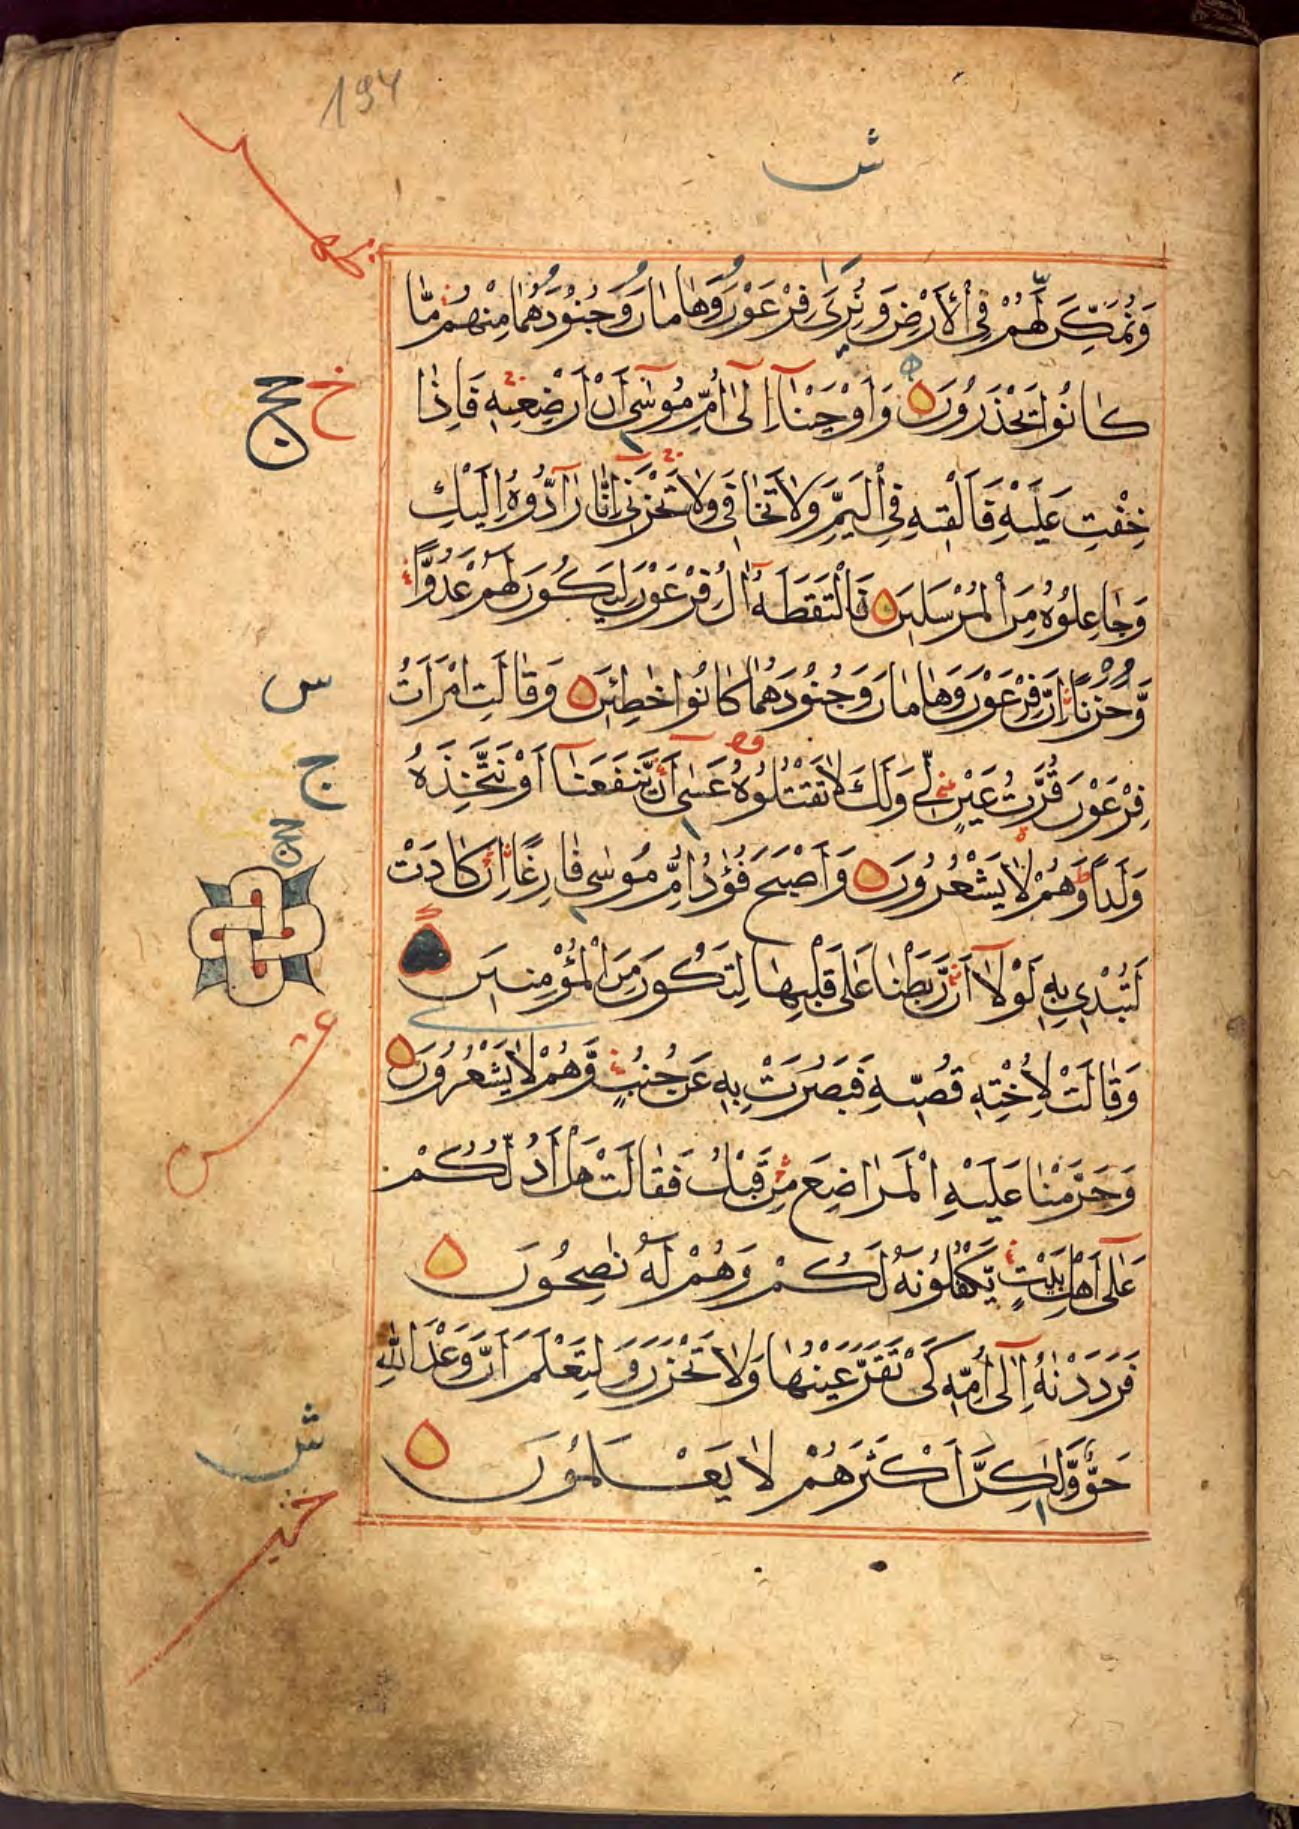 194
ش
وَنُمَكِّنَ لَهُمْ فِي الْأَرْضِ وَنُرِيَ فِرْعَوْنَ وَهَامَانَ وَجُنُودَهُمَا مِنْهُمْ مَّا
كَانُوا يَحْذَرُونَ وَأَوْحَيْنَا إِلَىٰ أُمِّ مُوسَىٰ أَنْ أَرْضِعِيهِ فَإِذَا
خِفْتِ عَلَيْهِ فَأَلْقِيهِ فِي الْيَمِّ وَلَا تَخَافِي وَلَا تَحْزَنِي إِنَّا رَآدُّوهُ إِلَيْكِ
وَجَاعِلُوهُ مِنَ الْمُرْسَلِينَ فَالْتَقَطَهُ آلُ فِرْعَوْنَ لِيَكُونَ لَهُمْ عَدُوًّا
وَّحَزَنًا إِنَّ فِرْعَوْنَ وَهَامَانَ وَجُنُودَهُمَا كَانُوا خَاطِئِينَ وَقَالَتِ امْرَأَتُ
فِرْعَوْنَ قُرَّتُ عَيْنٍ لِّي وَلَكَ لَا تَقْتُلُوهُ عَسَىٰ أَنْ يَّنْفَعَنَا أَوْ نَتَّخِذَهُ
وَلَدًا وَّهُمْ لَا يَشْعُرُونَ وَأَصْبَحَ فُؤَادُ أُمِّ مُوسَىٰ فَارِغًا إِنْ كَادَتْ
لَتُبْدِي بِهِ لَوْلَا أَنْ رَّبَطْنَا عَلَىٰ قَلْبِهَا لِتَكُونَ مِنَ الْمُؤْمِنِينَ
وَقَالَتْ لِأُخْتِهِ قُصِّيهِ فَبَصُرَتْ بِهِ عَنْ جُنُبٍ وَّهُمْ لَا يَشْعُرُونَ
وَحَرَّمْنَا عَلَيْهِ الْمَرَاضِعَ مِنْ قَبْلُ فَقَالَتْ هَلْ أَدُلُّكُمْ
عَلَىٰ أَهْلِ بَيْتٍ يَّكْفُلُونَهُ لَكُمْ وَهُمْ لَهُ نٰصِحُونَ
فَرَدَدْنٰهُ إِلَىٰ أُمِّهِ كَيْ تَقَرَّ عَيْنُهَا وَلَا تَحْزَنَ وَلِتَعْلَمَ أَنَّ وَعْدَ اللّٰهِ
حَقٌّ وَّلٰكِنَّ أَكْثَرَهُمْ لَا يَعْلَمُونَ
س
ج
عشر
ش